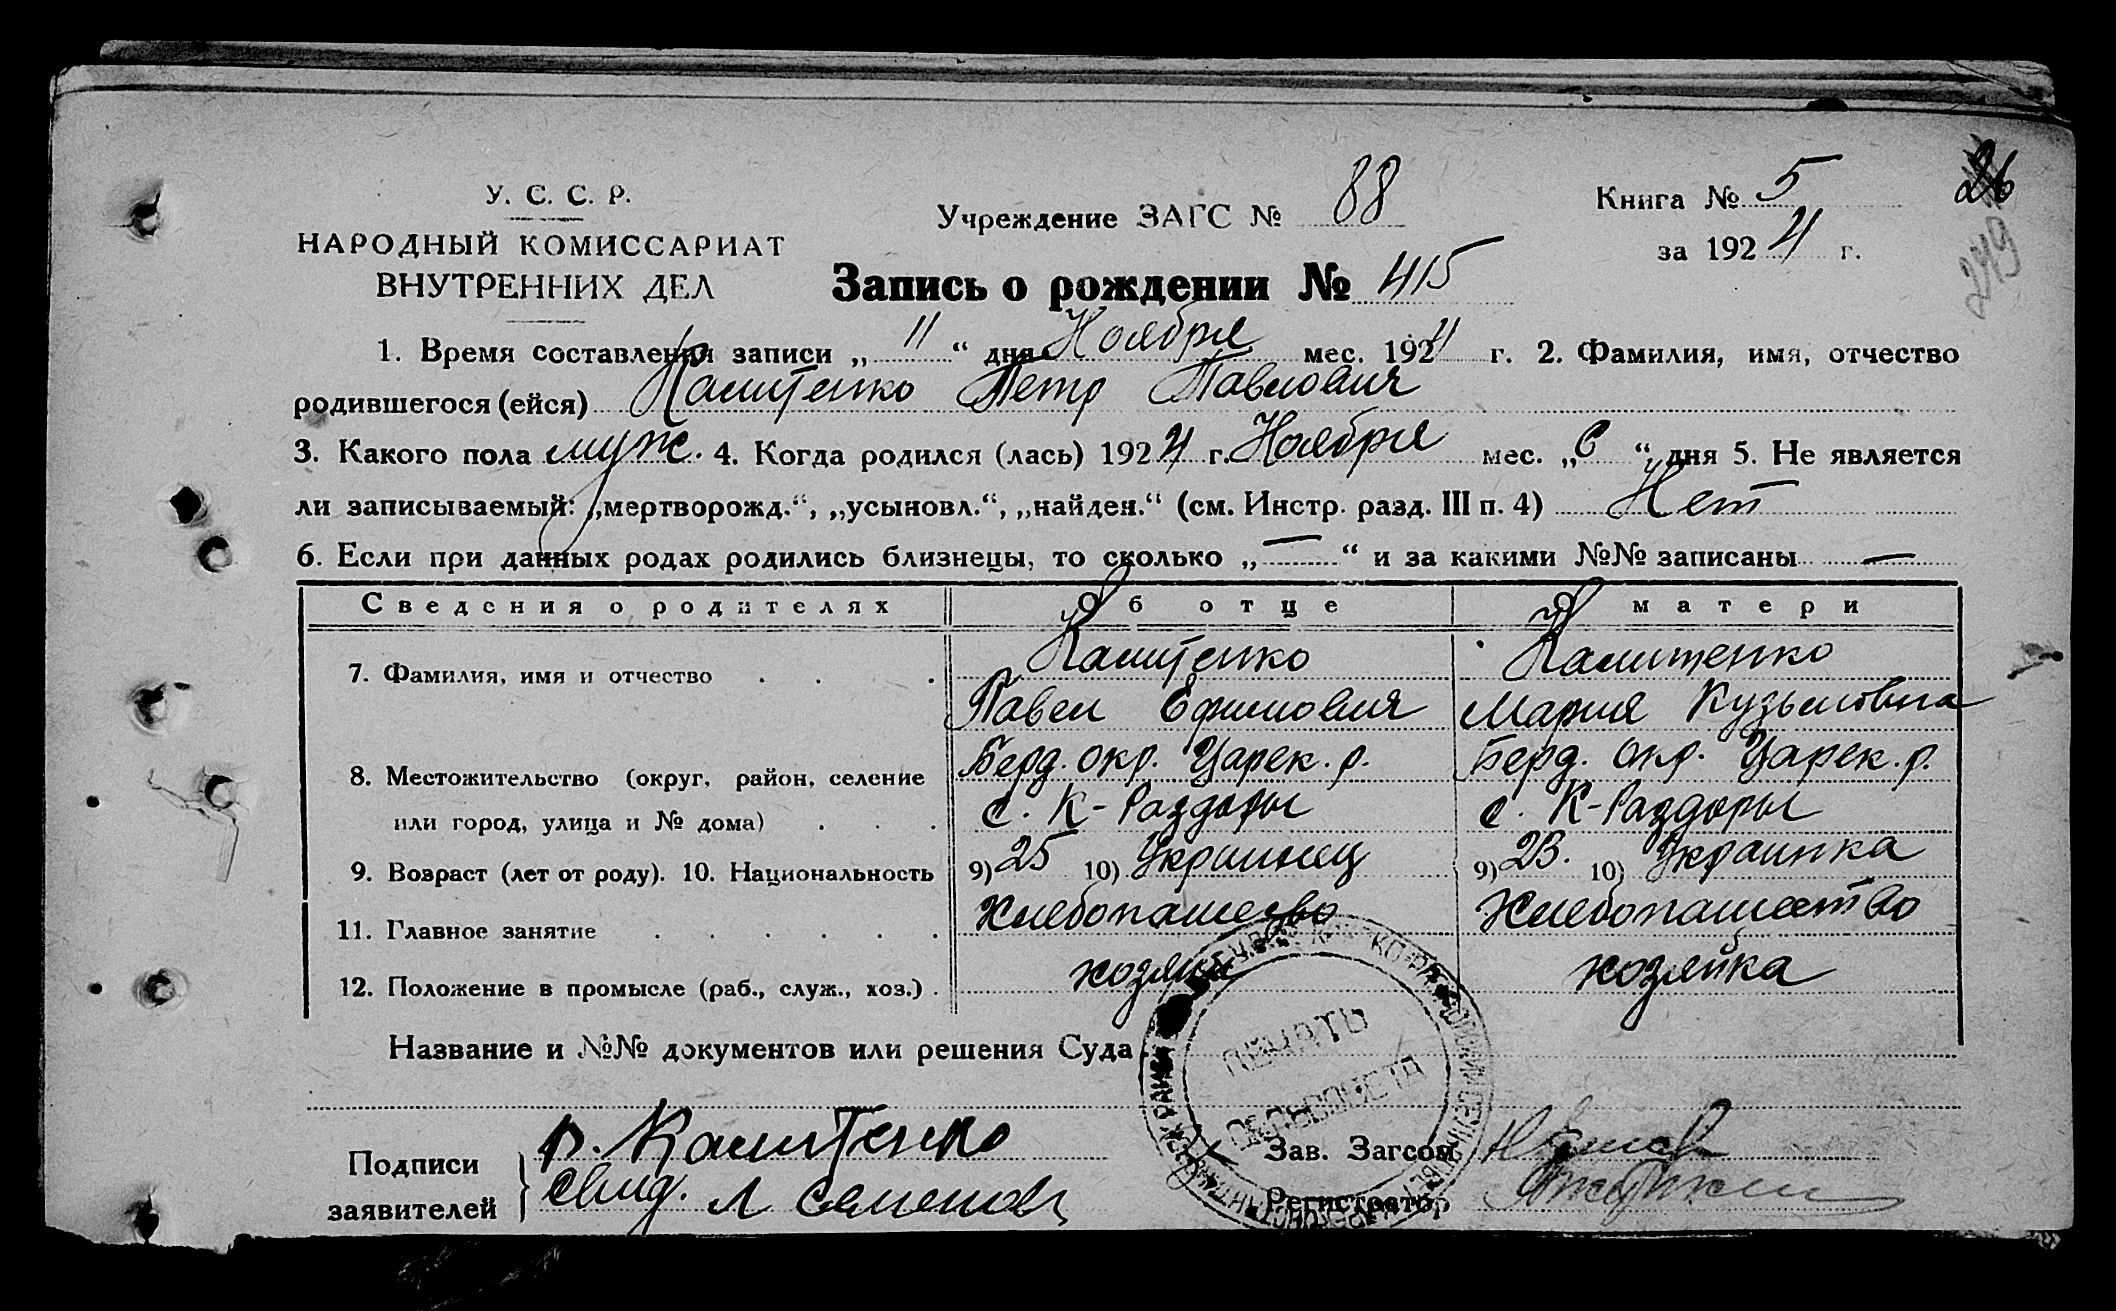 26
У. С. С. Р.
Учреждение ЗАГС № 88
Книга № 5
НАРОДНЫЙ КОМИССАРИАТ
за 1924 г.
249
ВНУТРЕННИХ ДЕЛ
Запись о рождении № 415
1. Время составления записи „ 11 “ дня Ноября мес. 1924 г. 2. Фамилия, имя, отчество
родившегося (ейся) Калитенко Петр Павлович
3. Какого пола муж. 4. Когда родился (лась) 1924 г. Ноября мес. „ 6 “ дня 5. Не является
ли записываемый: „мертворожд.“, „усыновл.“, „найден.“ (см. Инстр. разд. III п. 4) Нет
6. Если при данных родах родились близнецы, то сколько „ — “ и за какими №№ записаны —
Сведения о родителях Об отце О матери
7. Фамилия, имя и отчество . . . Калитенко Калитенко
Павел Ефимович Мария Кузьмовна
8. Местожительство (округ, район, селение Берд. окр. Царек. р. Берд. окр. Царек. р.
или город, улица и № дома) . . . с. К-Раздоры с. К-Раздоры
9. Возраст (лет от роду). 10. Национальность 9) 25 10) Украинец 9) 23. 10) Украинка
11. Главное занятие . . . . . . Хлебопашество Хлебопашество
12. Положение в промысле (раб., служ., хоз.) . хозяин хозяйка
Название и №№ документов или решения Суда
ПЕЧАТЬ
СЕЛЬСОВЕТА
Подписи
заявителей
П. Калитенко
свид. Л Семенов
Зав. Загсом
Регистратор